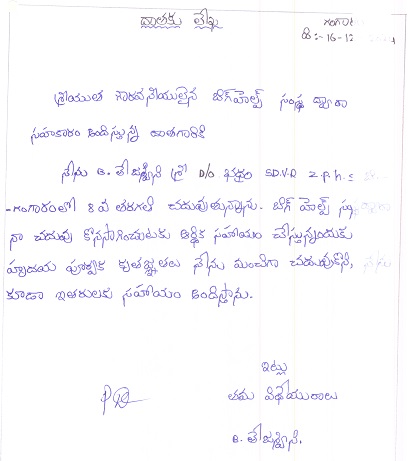 దాతకు లేఖ
గంగారం
తేది :- 16-12
శ్రీయుత గౌరవనీయులైన బిగ్‌హెల్ప్ సంస్థ ద్వారా
సహకారం అందిస్తున్న దాతగారికి
నేను B. తేజస్విని D/O భద్రం S.D.V.R Z.P.H.S
గంగారంలో 8 వ తరగతి చదువుతున్నాను. బిగ్ హెల్ప్
నా చదువు కొనసాగించుటకు ఆర్థిక సహాయం చేస్తున్నందుకు
హృదయ పూర్వక కృతజ్ఞతలు నేను మంచిగా చదువుకొని, నేను
కూడా ఇతరులకు సహాయం అందిస్తాను.
ఇట్లు
తమ విధేయురాలు
B. తేజస్విని.